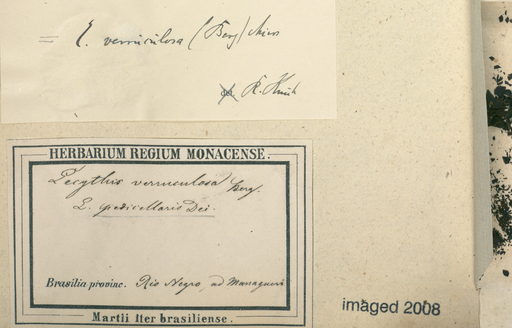 = E. verruculosa (Berg) Miers
det. R. Knuth
HERBARIUM REGIUM MONACENSE.
Lecythis verruculosa Berg.
L. pedicellaris Dei.
Brasilia provinc. Rio Negro, ad Manaqueri
Martii Iter brasiliense.
imaged 2008